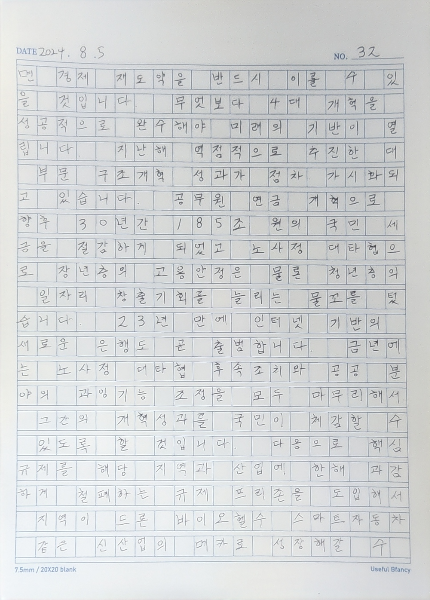 DATE 2024. 8. 5 NO. 32
면 경제 재도약을 반드시 이룰 수 있
을 것입니다 무엇보다 4대 개혁을
성공적으로 완수해야 미래의 기반이 열
립니다 지난해 역점적으로 추진한 4대
부문 구조개혁 성과가 점차 가시화되
고 있습니다. 공무원 연금 개혁으로
향후 30년간 185조 원의 국민 세
금을 절감하게 되었고 노사정 대타협으
로 장년층의 고용안정은 물론 청년층의
일자리 창출기회를 늘리는 물꼬를 텄
습니다. 23년 만에 인터넷 기반의
새로운 은행도 곧 출범합니다 금년에
는 노사정 대타협 후속조치와 공공 분
야의 과잉기능 조정을 모두 마무리해서
그간의 개혁성과를 국민이 체감할 수
있도록 할 것입니다 다음으로 핵심
규제를 해당 지역과 산업에 한해 과감
하게 철폐하는 규제 프리존을 도입해서
지역이 드론 바이오헬스 스마트자동차
같은 신산업의 메카로 성장해갈 수
7.5mm / 20X20 blank Useful Bfancy